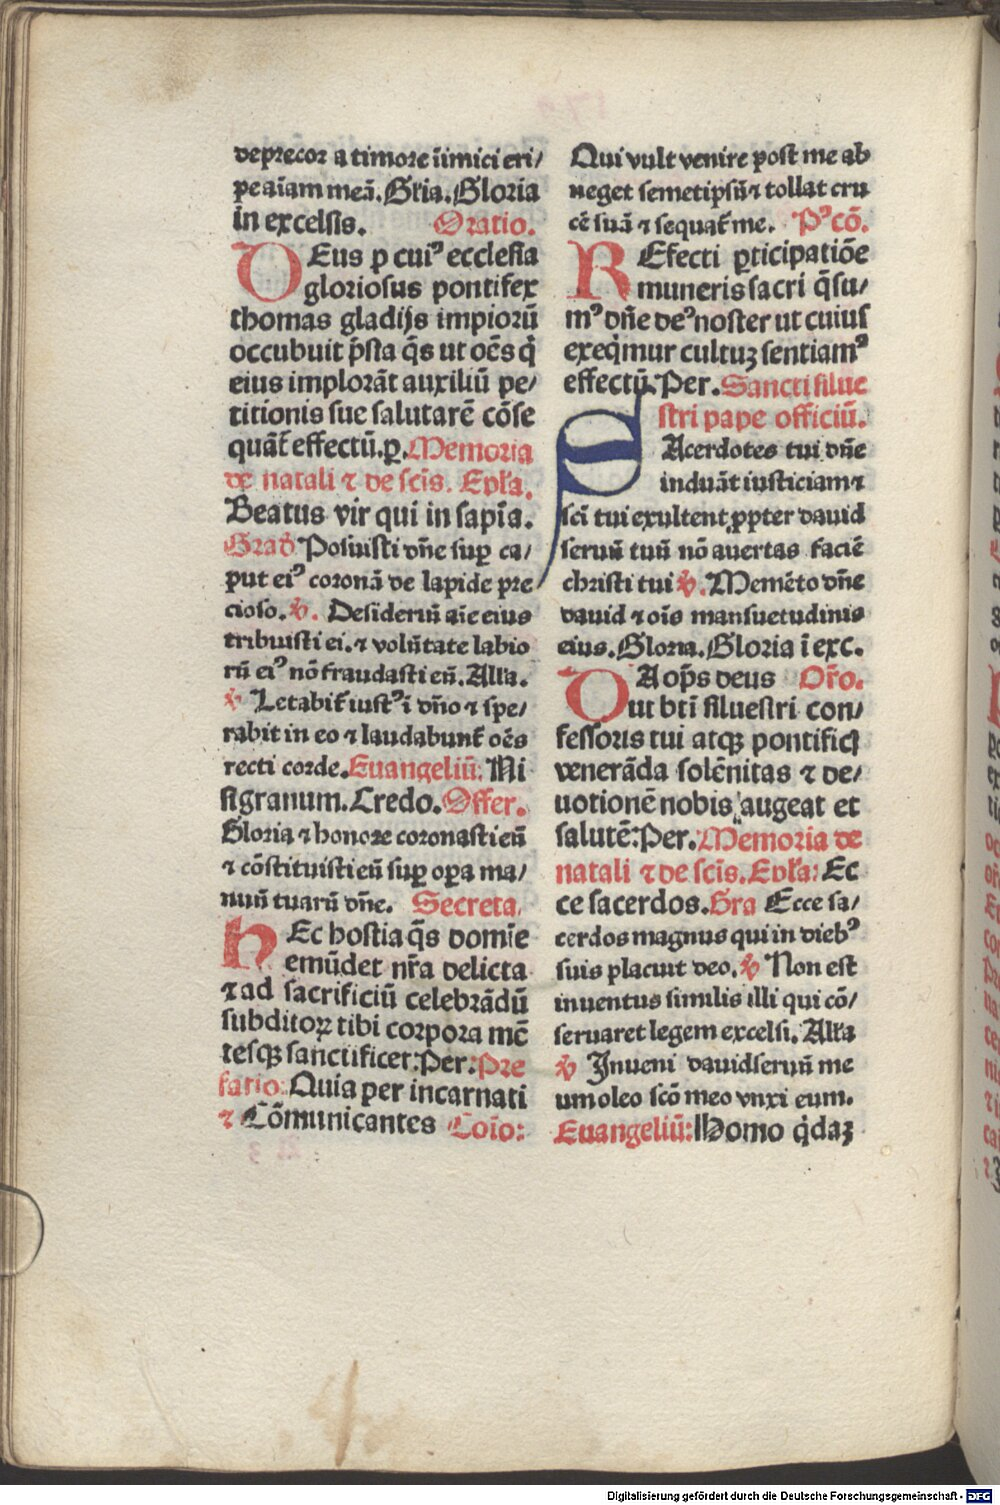 deprecor a timore iīmici eri/
pe aīam meā. Gr̄ia. Gloria
in excelsis. Oratio.
DEus ꝑ cuiꝰ ecclesia
gloriosus pontifex
thomas gladijs impiorū
occubuit p̄sta q̄s ut oēs q̄
eius implorāt auxiliū pe/
titionis sue salutarē cōse
quāt̄ effectū.ꝑ. Memoria
de natali ⁊ de sc̄is. Epl̄a.
Beatus vir qui in sapīa.
Grad̄ Posuisti dn̄e suꝑ ca/
put eiꝰ coronā de lapide pre
cioso. ℣. Desideriū aīe eius
tribuisti ei. ⁊ volūtate labio
rū eiꝰ nō fraudasti eū. All̄a.
℣ Letabit̄ iustꝰ ī dn̄o ⁊ spe/
rabit in eo ⁊ laudabunt̄ oēs
recti corde. Euangeliū: Ni
si granum. Credo. Offer.
Gloria ⁊ honore coronasti eū
⁊ cōstituisti eū suꝑ oꝑa ma/
nuū tuarū dn̄e. Secreta.
HEc hostia q̄s domīe
emūdet nr̄a delicta
⁊ ad sacrificiū celebrādū
subditoꝝ tibi corpora mē
tesqꝫ sanctificet: Per: Pre
fatio: Quia per incarnati
⁊ Cōmunicantes Coīo:
Qui vult venire post me ab
neget semetipsū ⁊ tollat cru
cē suā ⁊ sequat̄ me. Pꝰcō.
REfecti ꝑticipatiōe
muneris sacri q̄su/
mꝰ dn̄e deꝰ noster ut cuius
exeq̄mur cultuꝫ sentiamꝰ
effectū. Per. Sancti silue
stri pape officiū.
SAcerdotes tui dn̄e
induāt iusticiam ⁊
sc̄i tui exultent ꝓpter dauid
seruū tuū nō auertas faciē
christi tui ℣. Memēto dn̄e
dauid ⁊ oīs mansuetudinis
eius. Gloria. Gloria ī exc.
DA op̄s deus Or̄o.
ut bt̄i siluestri con/
fessoris tui atqꝫ pontificꝭ
venerāda solēnitas ⁊ de/
uotionē nobis augeat et
salutē: Per. Memoria de
natali ⁊ de sc̄is. Epl̄a: Ec
ce sacerdos. Gra Ecce sa/
cerdos magnus qui in diebꝰ
suis placuit deo. ℣ Non est
inuentus similis illi qui cō/
seruaret legem excelsi. All̄a
℣ Inueni dauid seruū me
um oleo scō meo vnxi eum.
Euangeliū: Homo q̄daꝫ
Digitalisierung gefördert durch die Deutsche Forschungsgemeinschaft - DFG